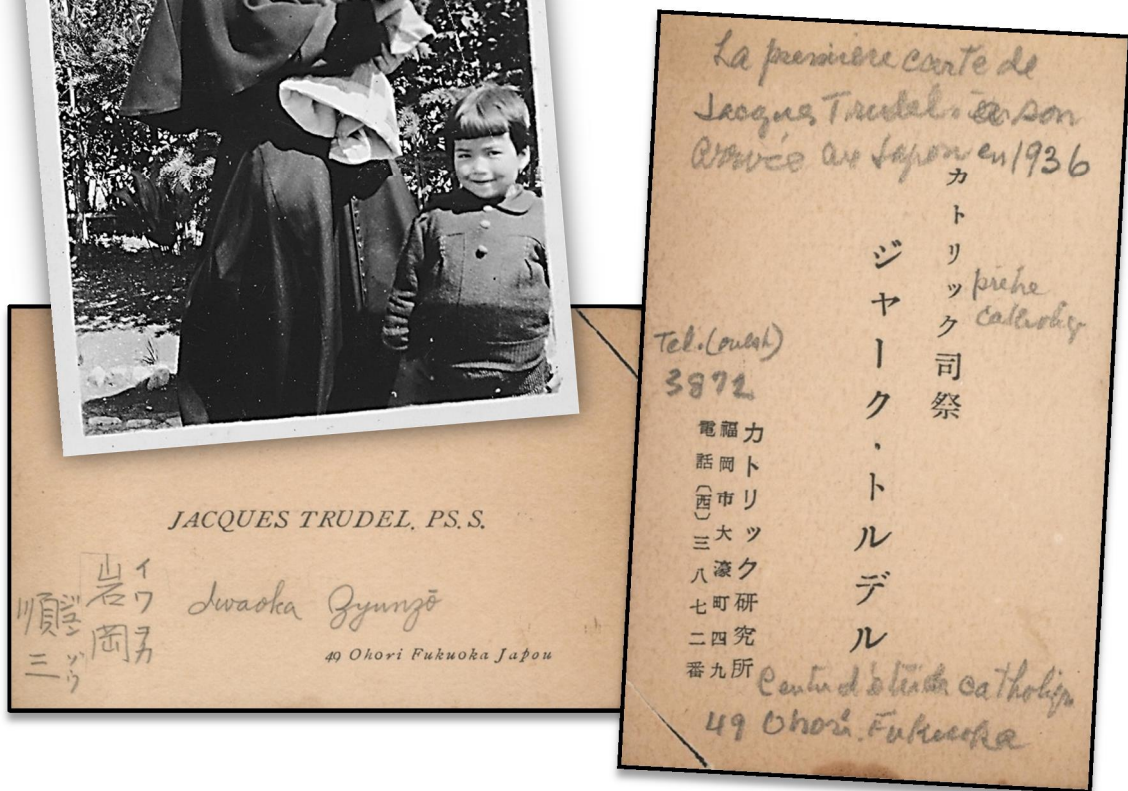 JACQUES TRUDEL, PS.S.
イワオカ
岩岡
ジュンゾウ
順三
Iwaoka Zyunzō
49 Ohori Fukuoka Japon
La première carte de
Jacques Trudel à son
arrivée au Japon en 1936
カトリック司祭
prêtre
catholique
ジャーク・トルデル
Tel. (ouest)
3872
カトリック研究所
福岡市大濠町四九
電話(西)三八七二番
Centre d'étude catholique
49 Ohori. Fukuoka